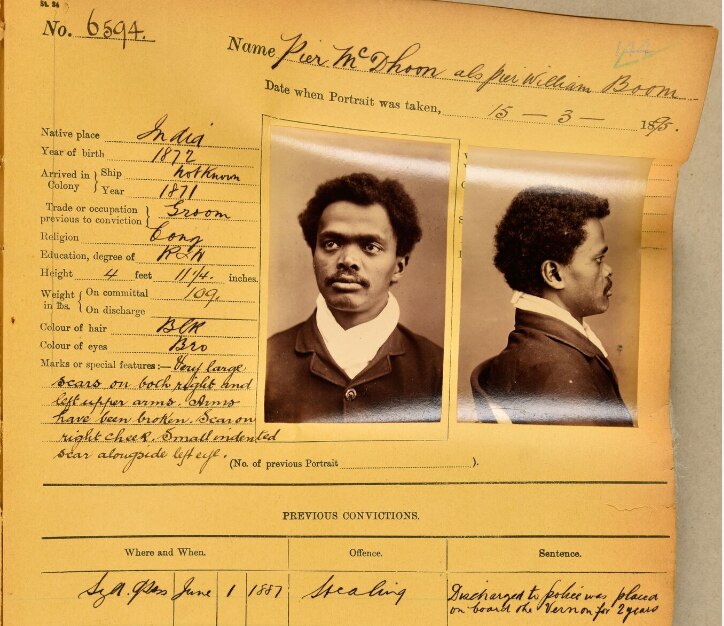 No. 6594.
Name Pier McDhoon als Pier William Boom
Date when Portrait was taken, 15 — 3 — 1895.
Native place India
Year of birth 1872
Arrived in Colony } Ship not known
Year 1871
Trade or occupation previous to conviction } Groom
Religion Cong
Education, degree of R & W
Height 4 feet 11¼ inches.
Weight in lbs. { On committal 109.
On discharge
Colour of hair Blk
Colour of eyes Bro
Marks or special features:— Very large
scars on both right and
left upper arms. Arms
have been broken. Scar on
right cheek. Small indented
scar alongside left eye.
(No. of previous Portrait ).
PREVIOUS CONVICTIONS.
Where and When. Offence. Sentence.
June 1 1887 Stealing Discharged to police was placed
on board the Vernon for 2 years